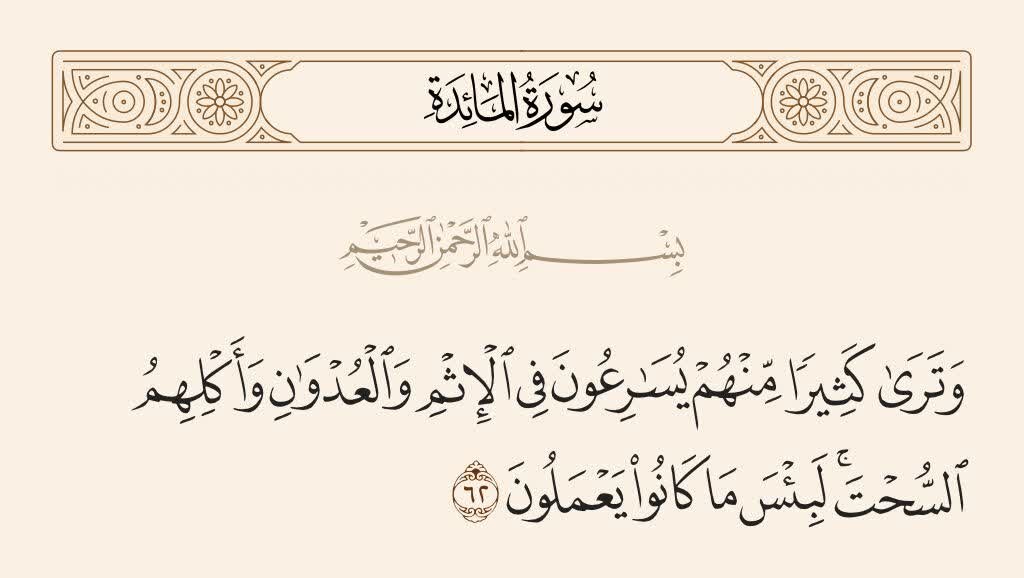 سُورَةُ المَائِدَةِ
بِسْمِ اللَّهِ الرَّحْمَٰنِ الرَّحِيمِ
وَتَرَىٰ كَثِيرًا مِّنْهُمْ يُسَـٰرِعُونَ فِى ٱلْإِثْمِ وَٱلْعُدْوَٰنِ وَأَكْلِهِمُ
ٱلسُّحْتَ ۚ لَبِئْسَ مَا كَانُوا۟ يَعْمَلُونَ ٦٢